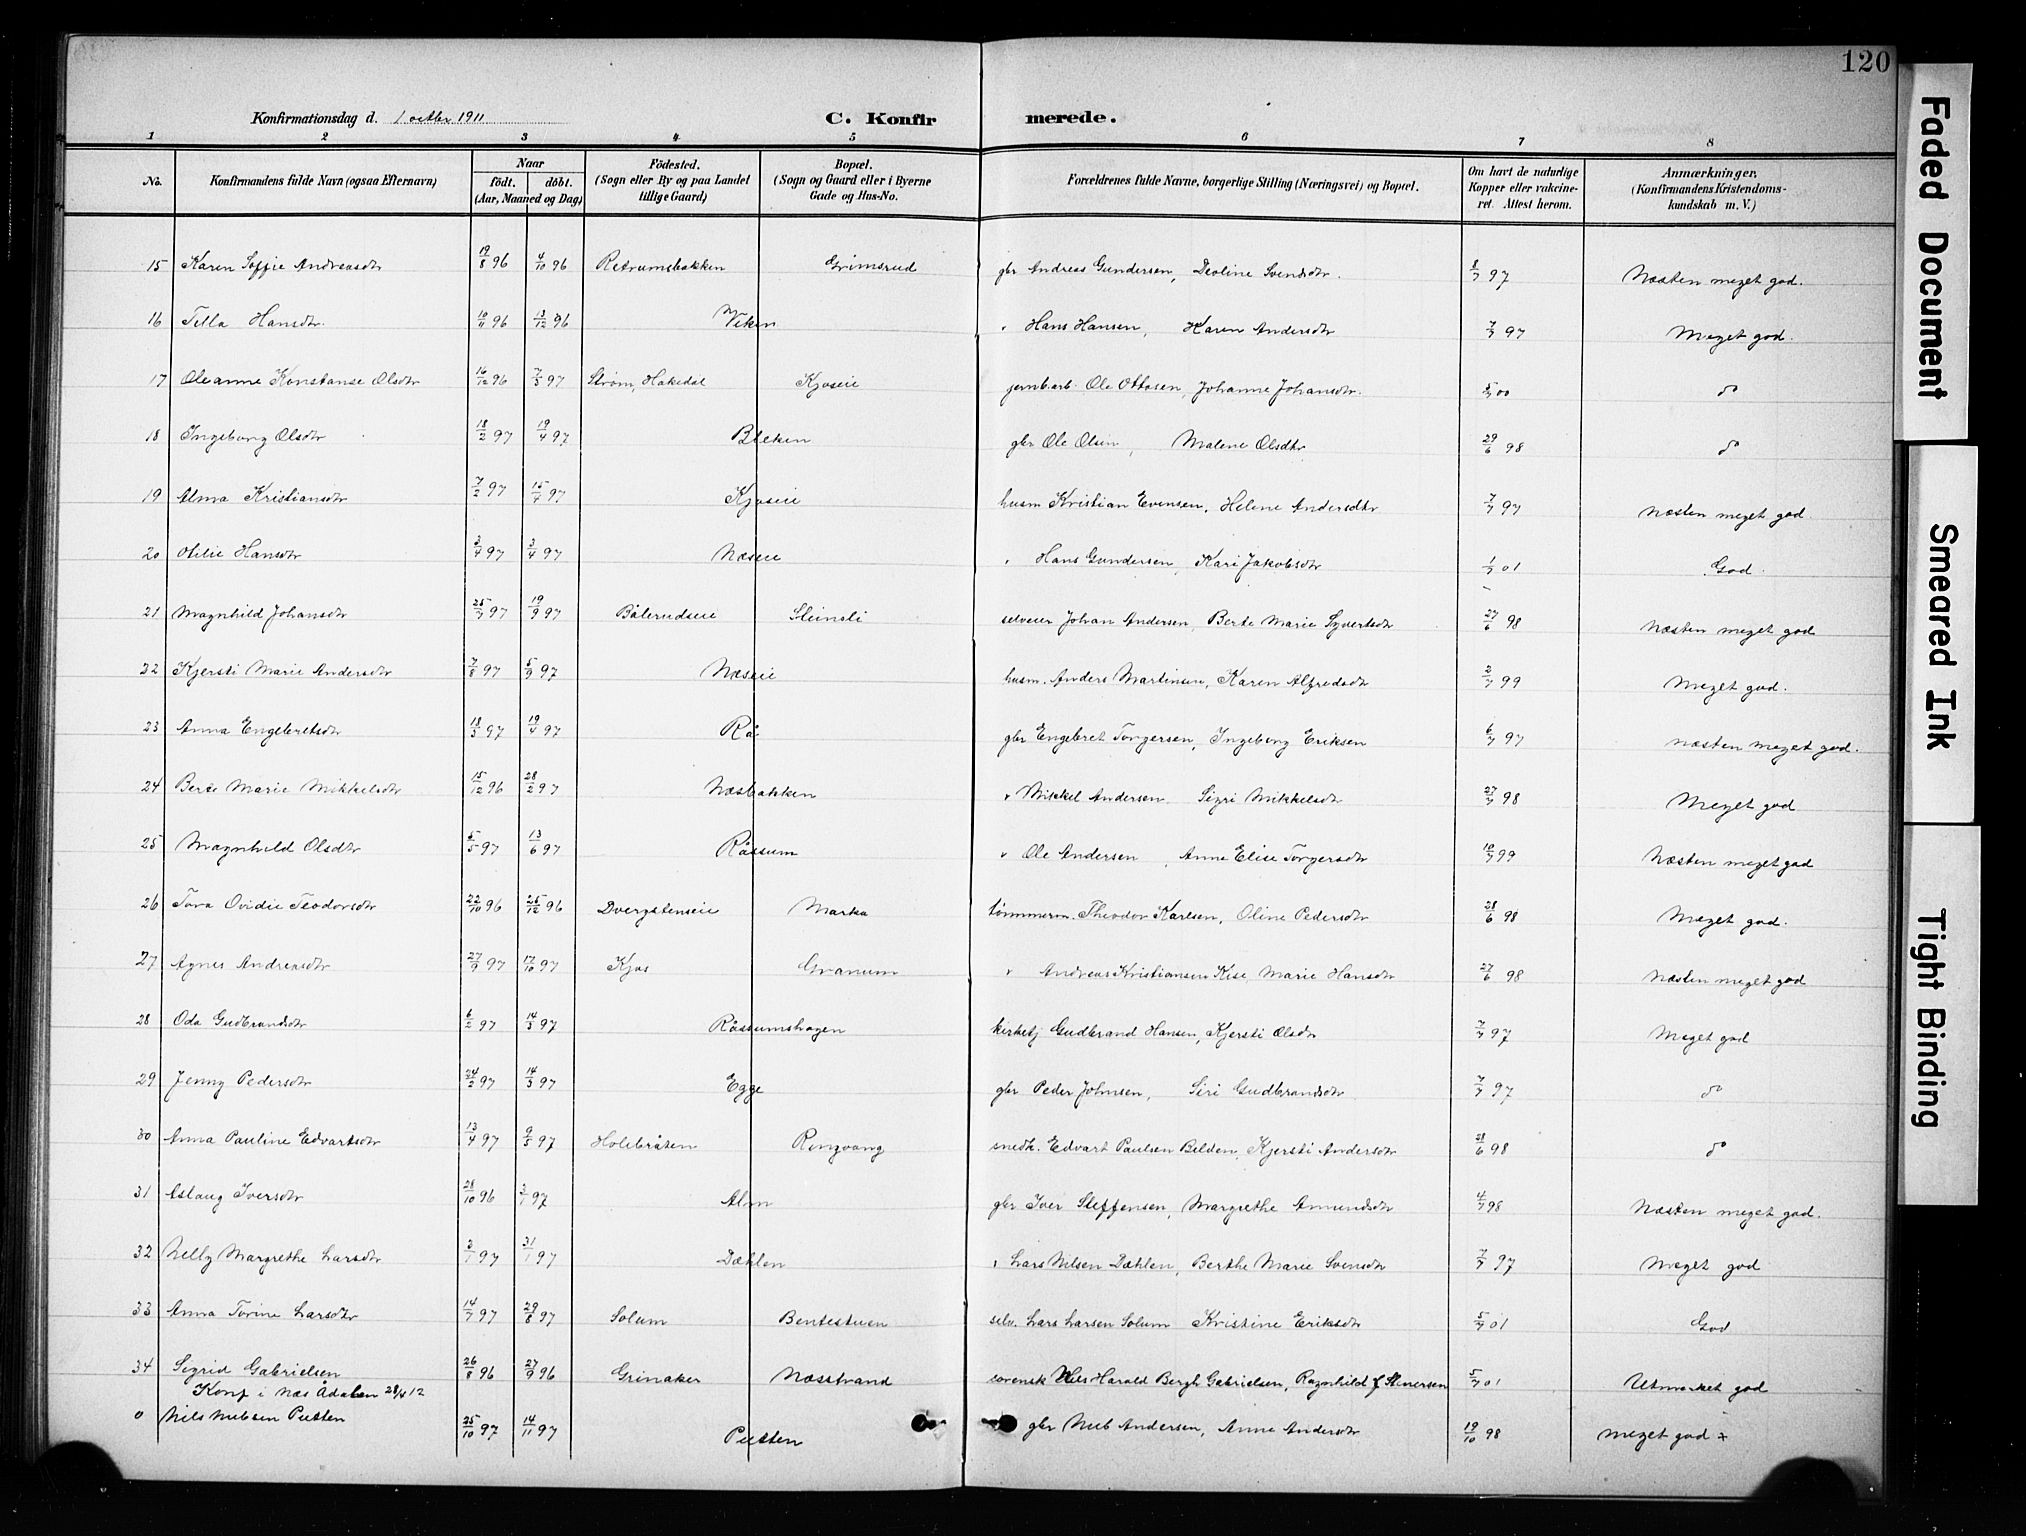 120
Konfirmationsdag d. 1 octbr 1911
C. Konfirmerede.
1 2 3 4 5 6 7 8
No. Konfirmandens fulde Navn (ogsaa Efternavn) Naar födt. döbt. (Aar, Maaned og Dag) Födested. (Sogn eller By og paa Landet tillige Gaard) Bopæl. (Sogn og Gaard eller i Byerne Gade og Hus-No. Forældrenes fulde Navne, borgerlige Stilling (Næringsvei) og Bopæl. Om havt de naturlige Kopper eller vakcineret. Attest herom. Anmærkninger. (Konfirmandens Kristendomskundskab m. V.)
15 Karen Soffie Andreasdtr 19/8 96 4/10 96 Retrumsbakken Grimsrud gbr Andreas Gundersen, Deoline Svendsdtr. 8/7 97 Næsten meget god.
16 Tilla Hansdtr. 10/11 96 13/12 96 Viken " Hans Hansen, Karen Andersdtr 7/7 97 Meget god.
17 Oleanne Konstanse Olsdtr 16/12 96 7/3 97 Strøm, Hakedal Kjoseie jernbarb. Ole Ottosen, Johanne Johansdtr. 5/7 00 do
18 Ingeborg Olsdtr 18/2 97 19/4 97 Bleken gbr Ole Olsen, Malene Olsdtr 29/6 98 do
19 Alma Kristiansdtr 7/2 97 15/4 97 Kjoseie husm Kristian Evensen, Helene Andersdtr 7/7 97 Næsten meget god
20 Otilie Hansdtr 97 97 Næseie " Hans Gundersen, Kari Jakobsdtr 1/7 01 God.
21 Magnhild Johansdtr 25/7 97 19/9 97 Bålerudseie Steinsli selveier Johan Andersen, Berte Marie Syvertsdtr 27/6 98 Næsten meget god
22 Kjersti Marie Andersdtr 7/8 97 5/9 97 Næseie husm. Anders Martinsen, Karen Alfredsdtr 2/7 99 Meget god.
23 Anna Engebretsdtr 18/3 97 19/4 97 Rå gbr Engebret Torgersen, Ingeborg Eriksen 6/7 97 næsten meget god.
24 Berte Marie Mikkelsdtr 15/12 96 28/2 97 Næsbakken " Mikkel Andersen Sigri Mikkelsdtr 27/7 98 Meget god
25 Magnhild Olsdtr 5/5 97 13/6 97 Råssum " Ole Andersen, Anne Elise Torgersdtr 10/7 99 Næsten meget god
26 Tora Ovidie Teodorsdtr 22/10 96 25/12 96 Dvergstenseie Marka tømmerm. Theodor Karlsen, Oline Pedersdtr 28/6 98 Meget god.
27 Agnes Andreasdtr 27/9 97 17/10 97 Kjos Granum " Andreas Kristiansen Kise Marie Hansdtr 27/6 98 Næsten meget god
28 Oda Gudbrandsdtr 6/2 97 14/3 97 Råssumshagen kirketj Gudbrand Hansen, Kjersti Olsdtr 7/7 97 Meget god
29 Jenny Pedersdtr 24/2 97 14/3 97 Egge gbr Peder Johnsen, Siri Gudbrandsdtr 7/7 97 do
30 Anna Pauline Edvartsdtr 13/4 97 9/5 97 Holebråten Ringvang snedk. Edvart Paulsen Bilden, Kjersti Andersdtr 28/6 98 do
31 Aslaug Iversdtr 28/10 96 3/1 97 Alm gbr Iver Steffensen, Margrethe Amundsdtr 4/7 98 Næsten meget god.
32 Nelly Margrethe Larsdtr 3/1 97 31/1 97 Dæhlen " Lars Nilsen Dæhlen, Berthe Marie Svensdtr 7/7 97 Meget god
33 Anna Torine Larsdtr 14/7 97 29/8 97 Solum Bentestuen selv. Lars Larsen Solum Kristine Eriksdtr 5/7 01 God
34 Sigrid Gabrielsen 26/8 96 27/9 96 Grinaker Næsstrand sorensk Nils Harald Bergh Gabrielsen, Ragnhild f. Steinersen 5/7 01 Utmerket god
Konf i Næs Ådalen 28/4 12
0 Nils Nubsen Putten 25/10 97 14/11 97 Putten gbr Nub Andersen, Anne Andersdtr 19/10 98 meget god +
Faded Document
Smeared Ink
Tight Binding